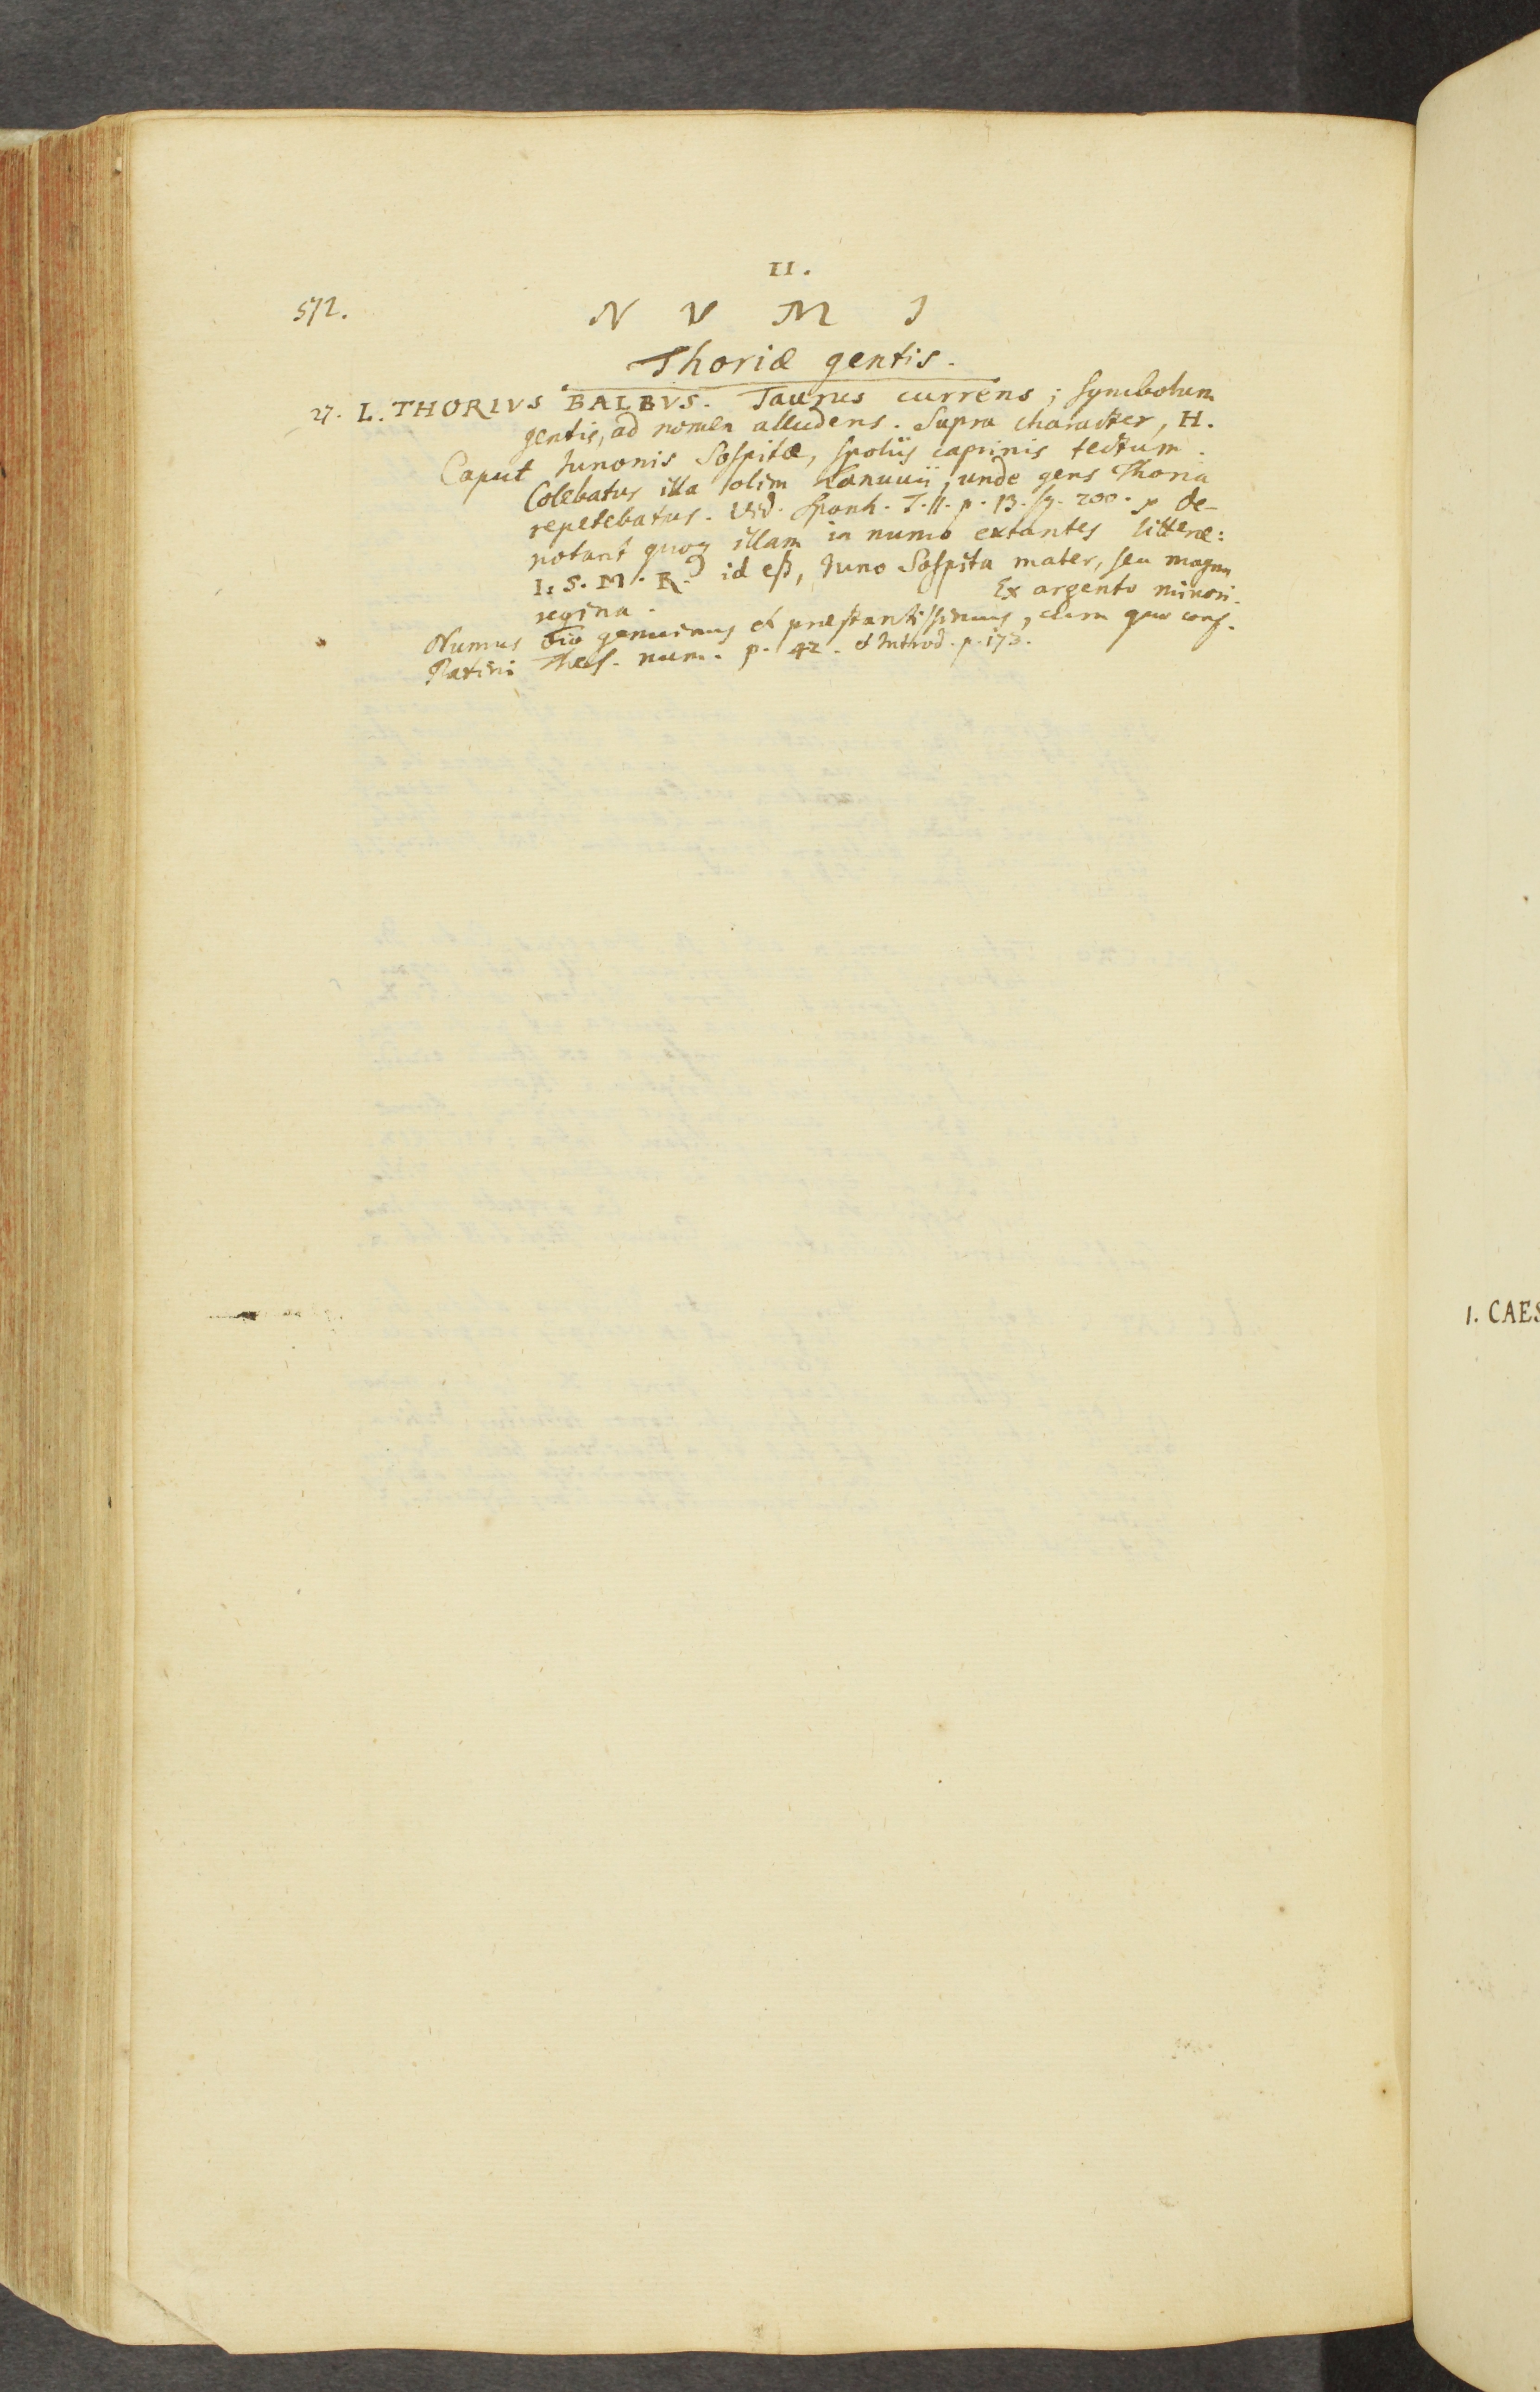 II.
572.
N V M I
Thoriæ gentis.
27. L. THORIVS BALBVS. Taurus currens; symbolum
gentis, ad nomen alludens. Supra character, H.
Caput Iunonis Sospitæ, spoliis caprinis tectum.
Colebatur illa olim Lanuvii, unde gens Thoria
repetebatur. Vid. Spanh. T. II. p. 13. 200. De-
notant quoq illam in numo extantes litteræ:
I. S. M. R. id est, Iuno Sospita mater, seu magna
regina. Ex argento minori.
Numus genuinus et præstantissimus, cum quo conf.
Patini Thes. num. p. 42. et Introd. p. 173.
1. CAES